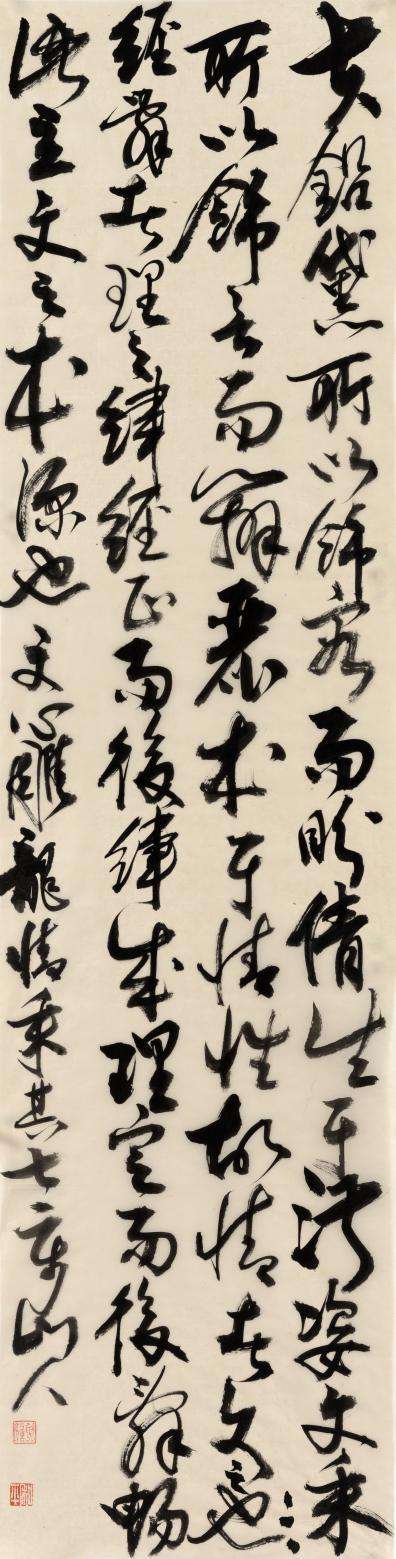 夫鉛黛所以飾容而盼倩生于淑姿文采
所以飾言而辯麗本于情性故情者文之也
經辭者理之緯經正而後緯成理定而後辭暢
此立文之本源也文心雕龍情采其七山人